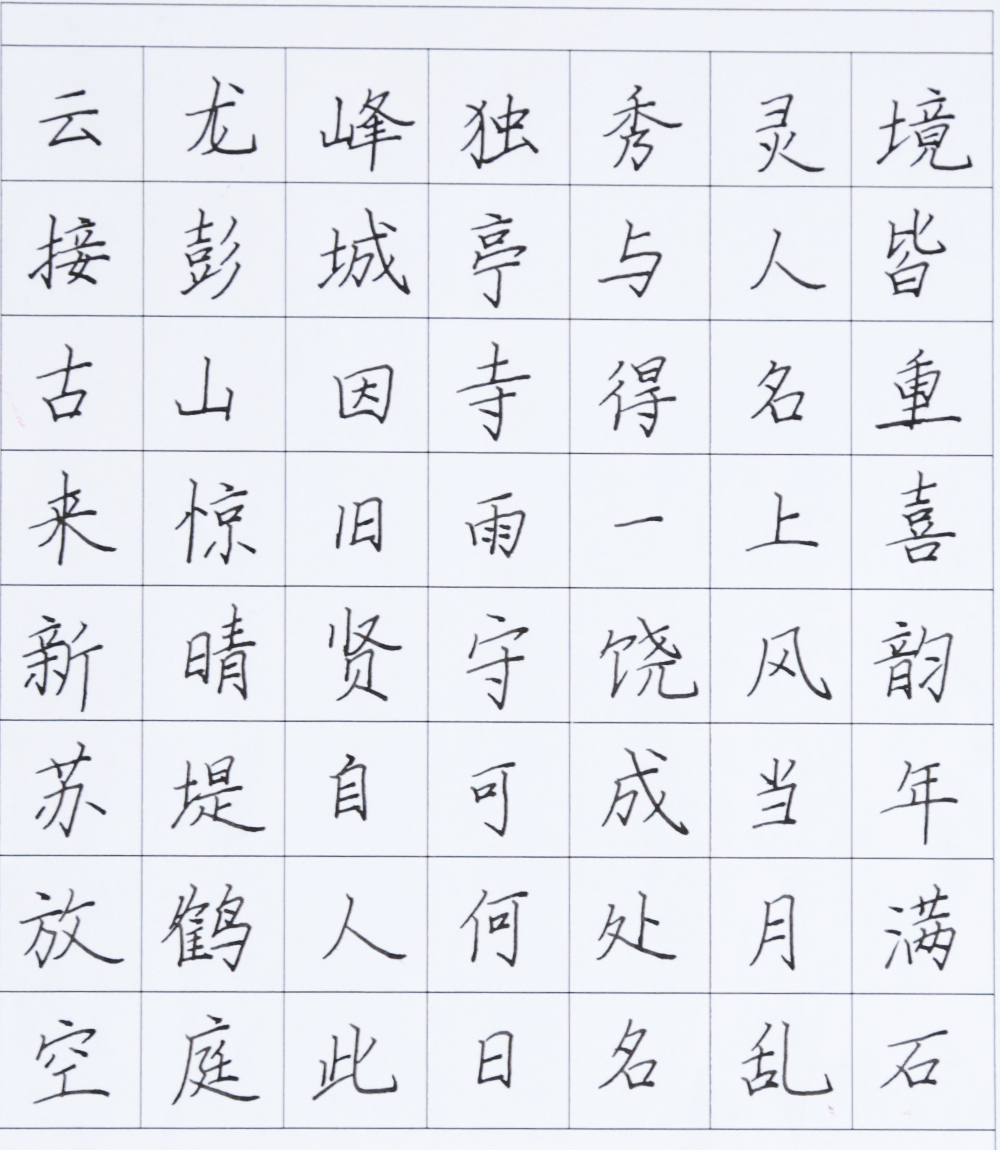 云龙峰独秀灵境
接彭城亭与人皆
古山因寺得名重
来惊旧雨一上喜
新晴贤守饶风韵
苏堤自可成当年
放鹤人何处月满
空庭此日名乱石